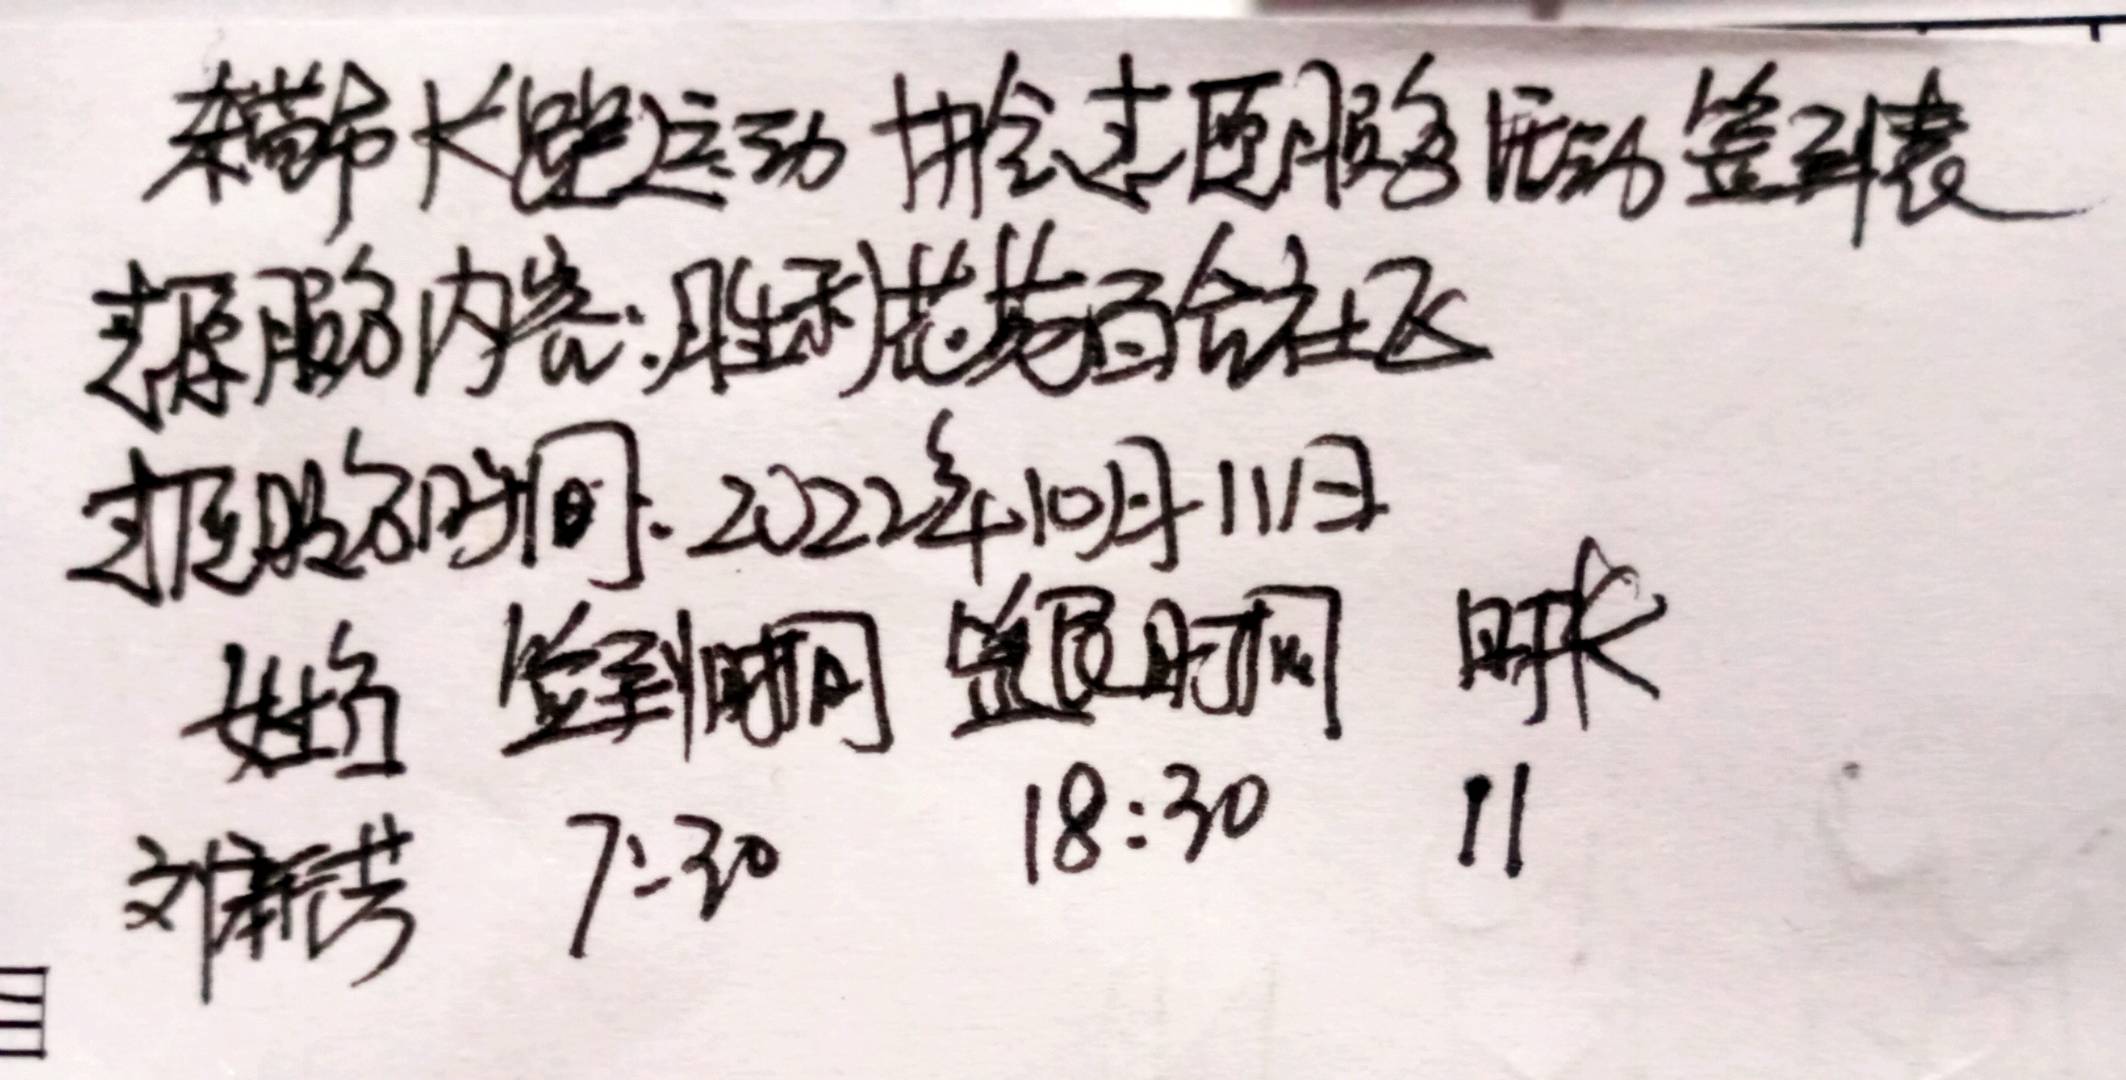 东营市长跑运动协会志愿服务活动签到表
志愿服务内容:胜利花苑百合社区
志愿服务时间:2022年10月11日
姓名 签到时间 签退时间 时长
刘新芳 7:30 18:30 11